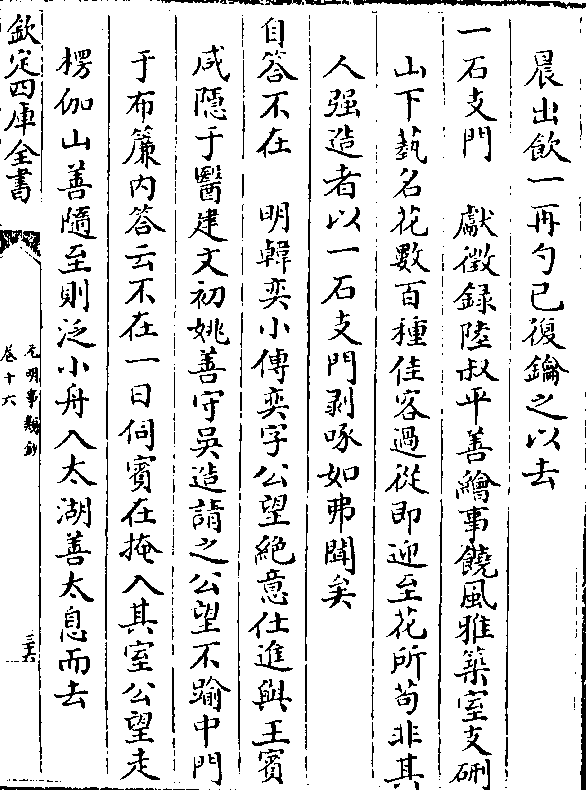 晨出飲一再勺已復鑰之以去
一石支門　獻徵録陸叔平善繪事饒風雅築室支硎
山下蓺名花數百種佳客過從即迎至花所苟非其
人强造者以一石支門剥啄如弗聞矣
自答不在　明韓奕小傳奕字公望絶意仕進與王賓
咸隠于醫建文初姚善守吳造請之公望不踰中門
于布簾内答云不在一日伺賓在掩入其室公望走
楞伽山善隨至則泛小舟入太湖善太息而去
欽定四庫全書
元明事類鈔
卷十六
三六